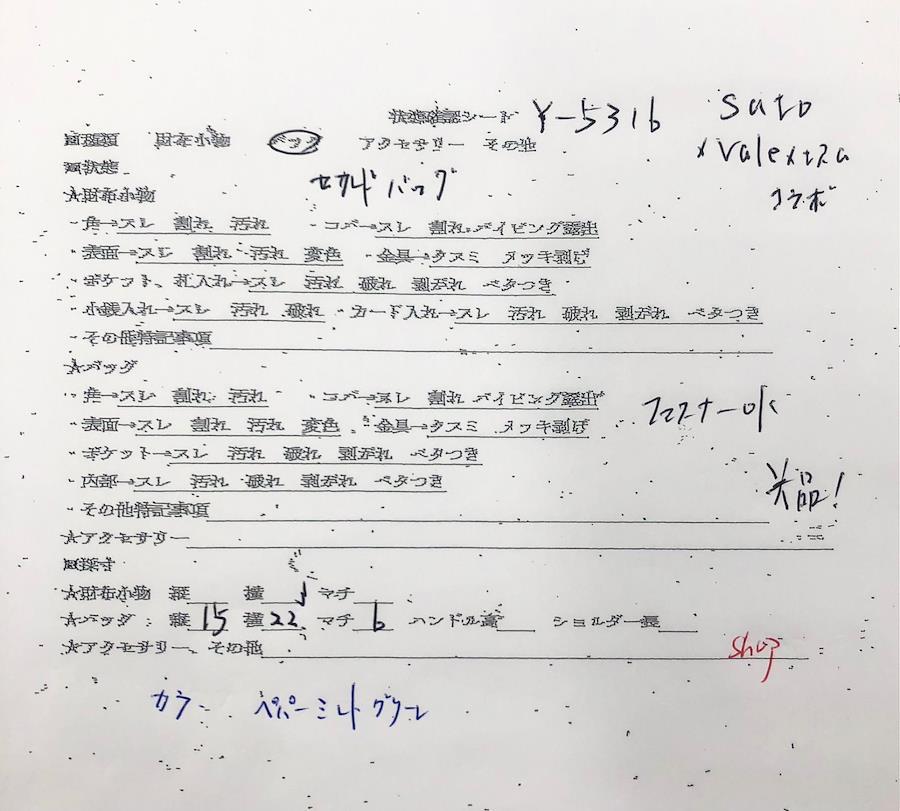 状態確認シート Y-5316 sato
■種類 財布小物 バッグ アクセサリー その他 × Valextra
■状態 コラボ
★財布小物 セカンドバッグ
・角→スレ 割れ 汚れ ・コバ→スレ 割れ パイピング露出
・表面→スレ 割れ 汚れ 変色 ・金具→クスミ メッキ剥げ
・ポケット、札入れ→スレ 汚れ 破れ 剥がれ ベタつき
・小銭入れ→スレ 汚れ 破れ ・カード入れ→スレ 汚れ 破れ 剥がれ ベタつき
・その他特記事項
★バッグ
・角→スレ 割れ 汚れ ・コバ→スレ 割れ パイピング露出
・表面→スレ 割れ 汚れ 変色 ・金具→クスミ メッキ剥げ ファスナーOK
・ポケット→スレ 汚れ 破れ 剥がれ ベタつき
・内部→スレ 汚れ 破れ 剥がれ ベタつき 美品!
・その他特記事項
★アクセサリー
■採寸
★財布小物 縦 横 マチ
★バッグ : 縦 15 横 22 マチ 6 ハンドル高 ショルダー長
★アクセサリー、その他 shop
カラー ペパーミントグリーン